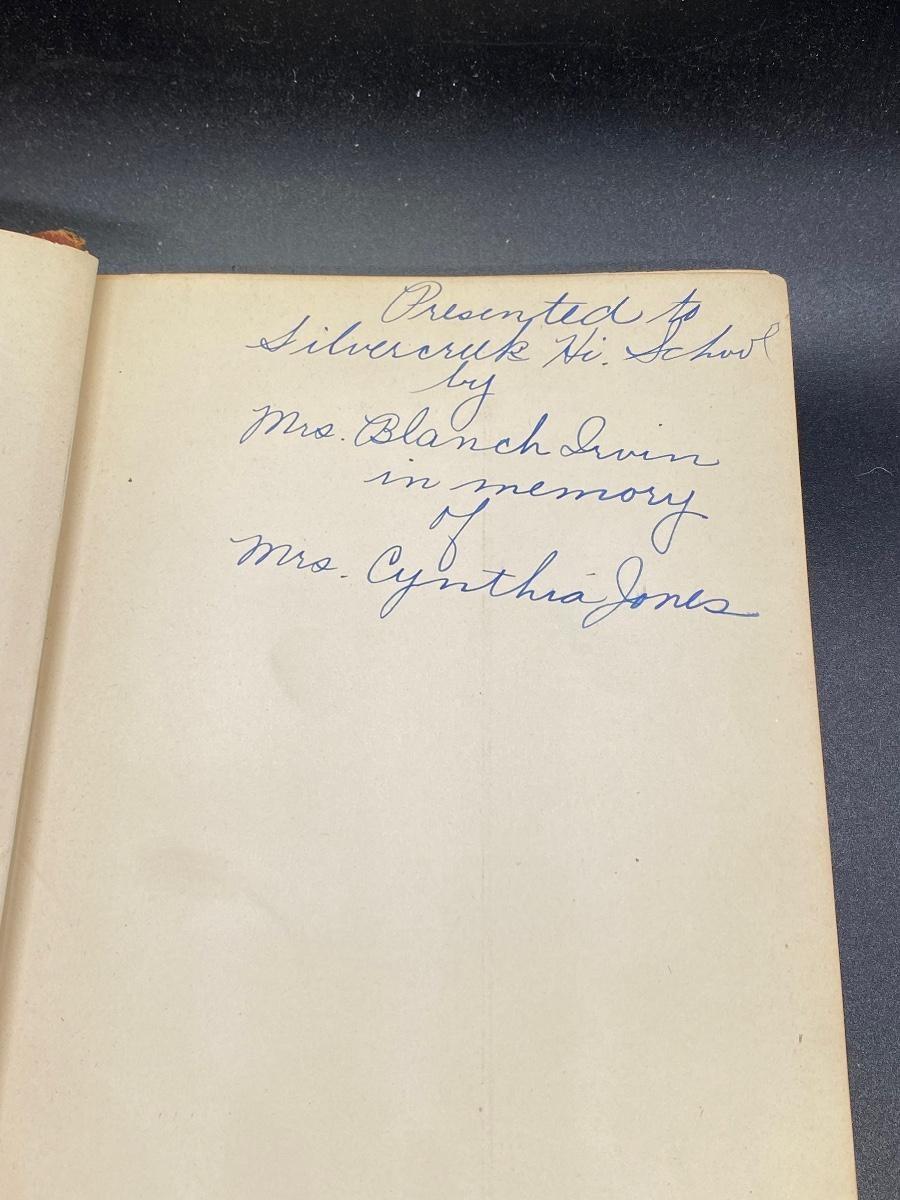 Presented to
Silvercreek Hi. School
by
Mrs. Blanch Irvin
in memory
of
Mrs. Cynthia Jones